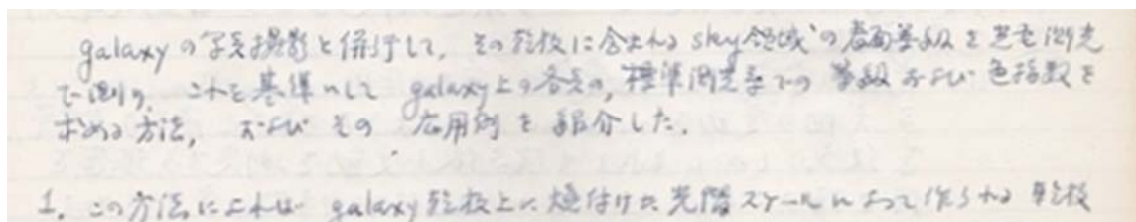 galaxyの写真撮影と併行して、その乾板に含まれるsky領域の表面等級を光電測光
で測り、これを基準にしてgalaxy上の各点の、標準測光系での等級および色指数を
求める方法、およびその応用例を紹介した。
1. この方法によれば galaxy乾板上に焼付けた光階スケールによって作られる乾板